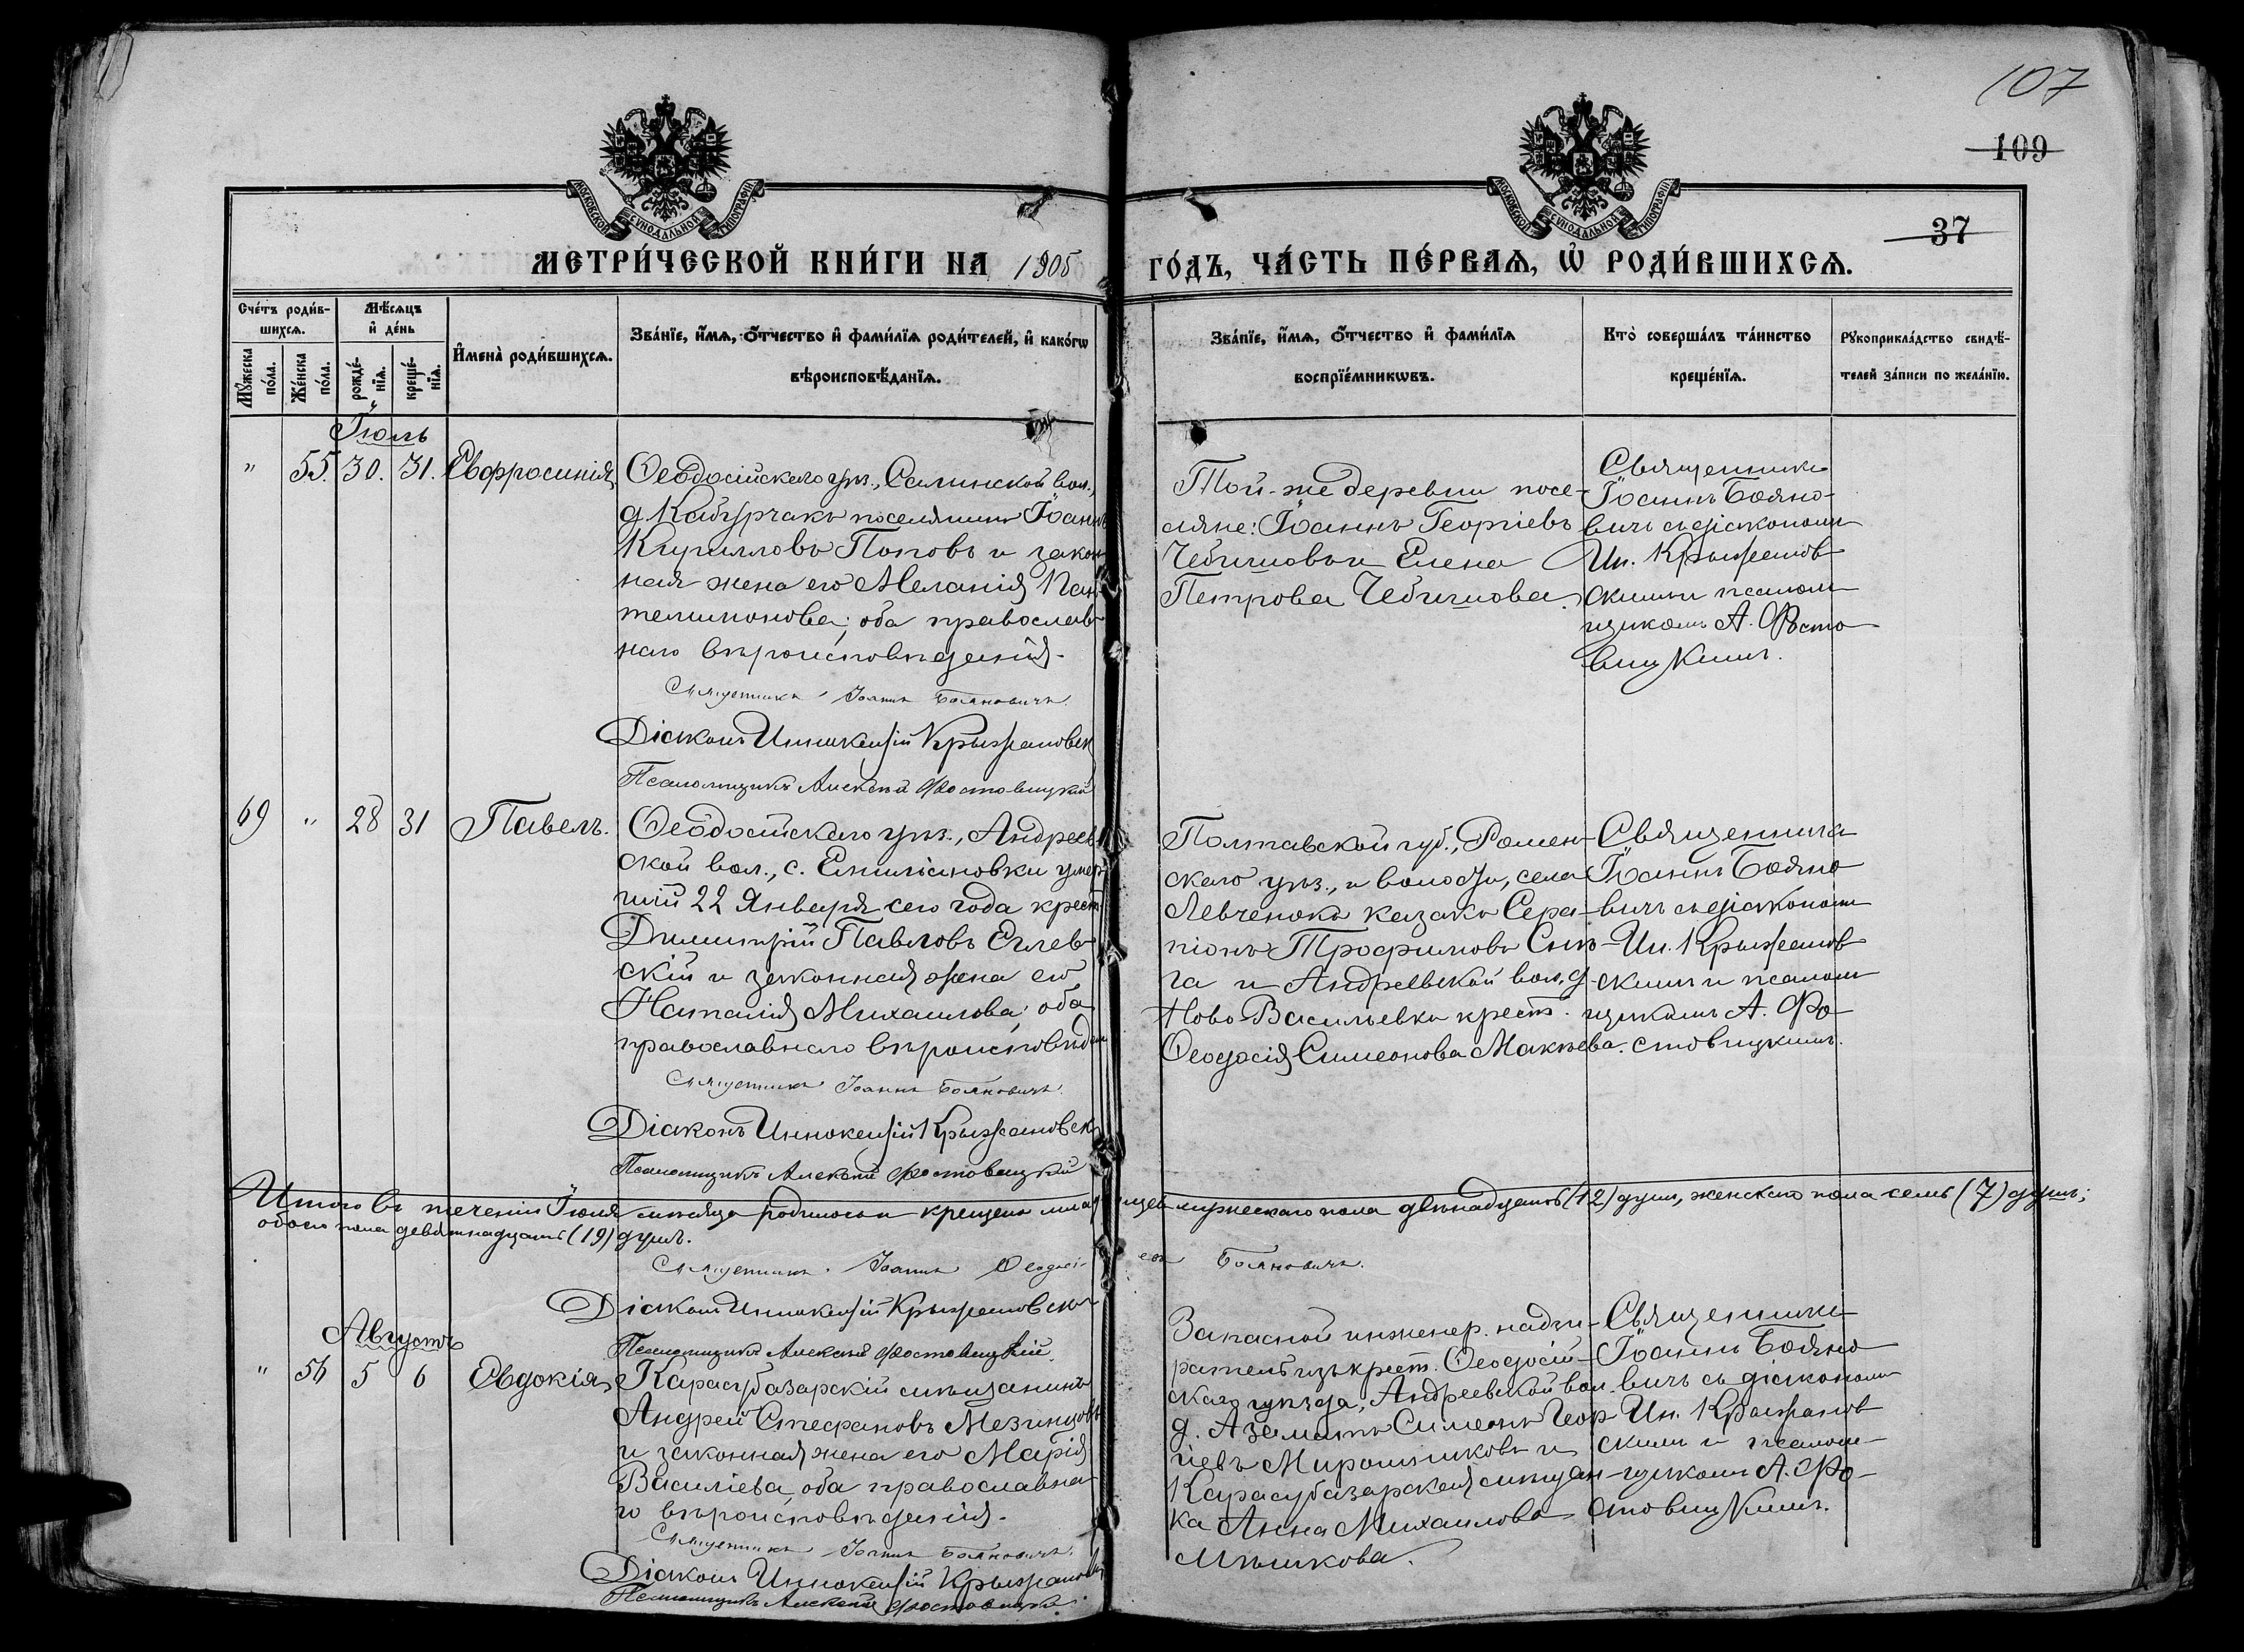 107
109
37
МОСКОВСКОЙ СѴНОДАЛЬНОЙ ТИПОГРАФІИ
МОСКОВСКОЙ СѴНОДАЛЬНОЙ ТИПОГРАФІИ
МЕТРИ́ЧЕСКОЙ КНИ́ГИ НА 1905
ГО́ДЪ, ЧА́СТЬ ПЕ́РВАѦ, Ѡ҆ РОДИ́ВШИХСѦ.
Сче́тъ роди́в-
шихсѧ.
Мꙋ́жеска по́ла.
Же́нска по́ла.
Мѣ́сѧцъ
и҆ де́нь
рожде́-нїѧ.
креще́-нїѧ.
И҆мена̀ роди́вшихсѧ.
Зва́нїе, и҆́мѧ, ѻ҆́тчество и҆ фами́лїѧ роди́телей, и҆ како́гѡ
вѣроисповѣ́данїѧ.
Зва́нїе, и҆́мѧ, ѻ҆́тчество и҆ фами́лїѧ
воспрїе́мникѡвъ.
Кто̀ соверша́лъ та́инство
креще́нїѧ.
Рꙋкоприкла́дство свидѣ́-
телей за́писи по жела́нїю.
Іюль
" 55. 30. 31. Евфросинія
Ѳеодосійскаго уѣз., Салинской вол.,
д. Кабурчакъ поселянинъ Іоаннъ
Кирилловъ Поповъ и закон
ная жена его Меланія Пан
телимонова; оба православ
наго вѣроисповѣданія.
Священникъ Іоаннъ Бояновичъ.
Діаконъ Иннокентій Крыжановск
Псаломщикъ Алексѣй Фостовицкій
Той-же деревни посе-
ляне: Іоаннъ Георгіевъ
Чебышовъ и Елена
Петрова Чебышова.
Священникъ
Іоаннъ Бояно-
вичъ съ діакономъ
Ин. Крыжанов
скимъ и псаломъ
щикомъ А. Фосто
вицкимъ.
69 " 28 31 Павелъ.
Ѳеодосійскаго уѣз., Андреев
ской вол., с. Емиліановки умер
шій 22 Января сего года крест.
Димитрій Павловъ Еглев
скій и законная жена его
Наталія Михаилова; оба
православнаго вѣроисповѣдан
Священникъ Іоаннъ Бояновичъ.
Діаконъ Иннокентій Крыжановск
Псаломщикъ Алексѣй Фостовицкій
Полтавской губ., Ромен-
скаго уѣз., и волости, села
Левченокъ казакъ Сера-
піонъ Трофимовъ Снѣ-
га и Андреевской вол. д.
Ново-Васильевки крест.
Ѳеодосія Симеонова Макѣева.
Священникъ
Іоаннъ Бояно
вичъ съ діакономъ
Ин. Крыжанов
скимъ и псаломъ
щикомъ А. Фо-
стовицкимъ.
Итого въ теченіи Іюля мѣсяца родилось и крещено млад нцевъ мужескаго пола двѣнадцать (12) душъ, женскаго пола семь (7) душъ;
обоего пола девятнадцать (19) душъ.
Священникъ Іоаннъ Ѳеодосі евъ Бояновичъ.
Діаконъ Иннокентій Крыжановск
Псаломщикъ Алексѣй Фостовицкій.
Августъ
" 56 5 6 Евдокія
Карасубазарскій мѣщанинъ
Андрей Стефановъ Мезинцовъ
и законная жена его Марія
Василіева, оба православна
го вѣроисповѣданія.
Священникъ Іоаннъ Бояновичъ.
Діаконъ Иннокентій Крыжановск
Псаломщикъ Алексѣй Фостовицкі
Запасной инженер. надзи-
ратель изъ крест. Ѳеодосій-
скаго уѣзда, Андреевской вол.
д. Азаматъ Симеонъ Геор
гіевъ Мирошниковъ и
Карасубазарская мѣщан-
ка Анна Михаилова
Мѣшкова.
Священникъ
Іоаннъ Бояно
вичъ съ діакономъ
Ин. Крыжанов
скимъ и псалом-
щикомъ А. Фо-
стовицкимъ.